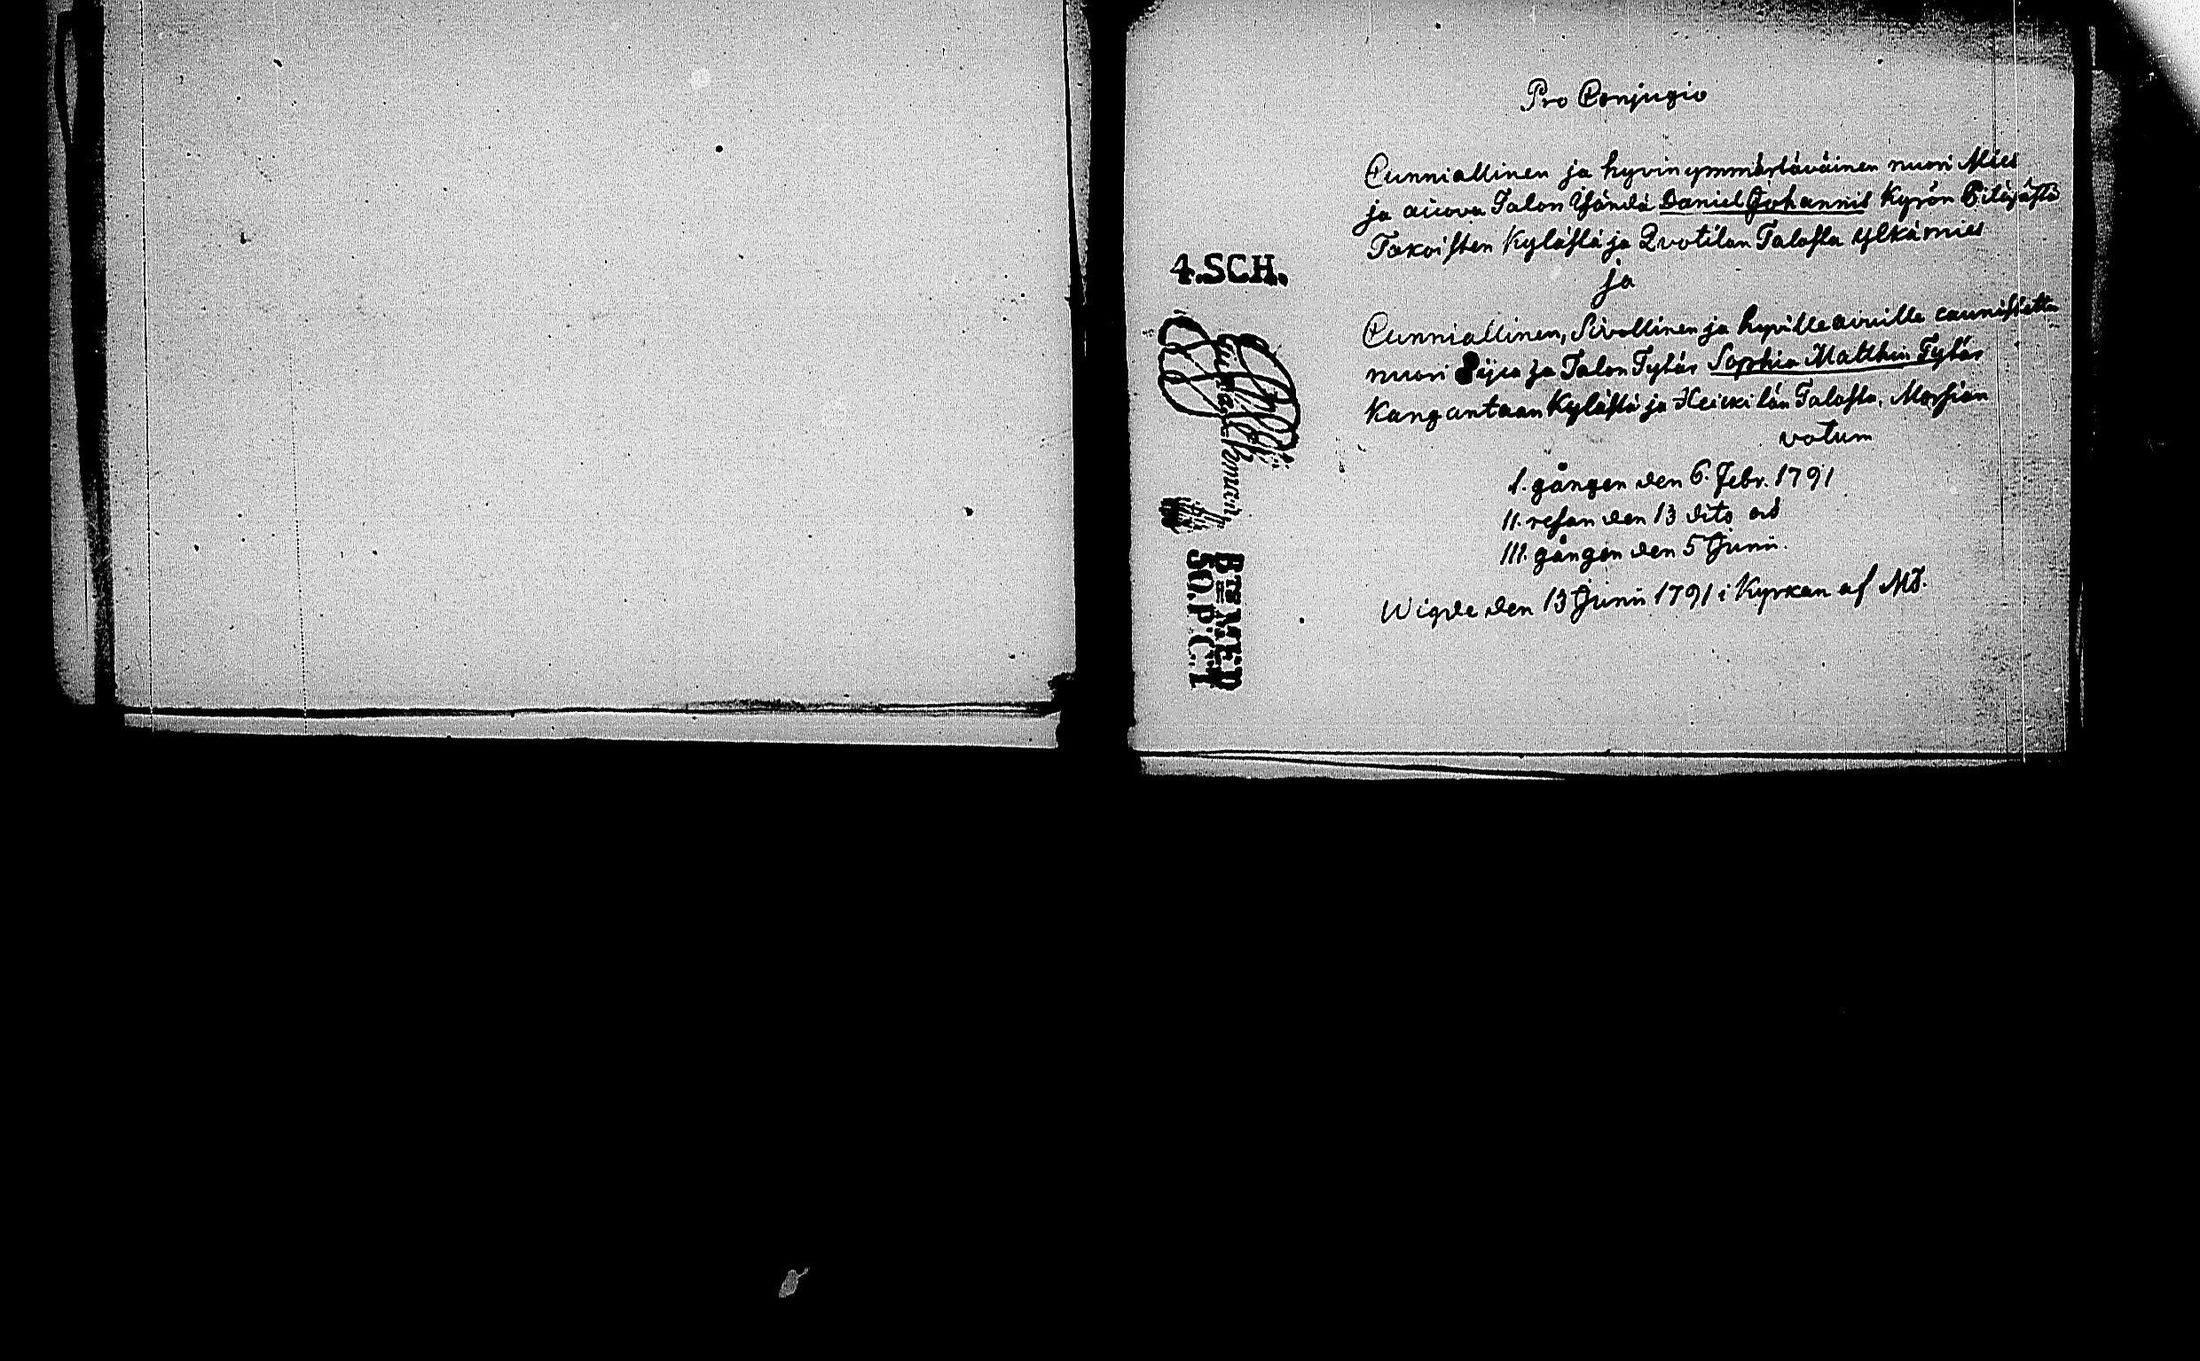 Pro Conjugio
Cunniallinen ja hyvin ymmärtäväinen nuori Mies
ja aicova Talon Isändä Daniel Johannis Kyrön Pitäjästä
Takoisten Kylästä ja Quotilan Talosta ylkämies
ja
4.SCH.
Cunniallinen, Sivollinen ja hyvillä avuilla caunistettu
nuori Pijca ja Talon Tytär Sophia Matthiii Tytär
Kangantaan Kylästä ja Heickilän Talosta, Morsian
votum
1. gången den 6. Febr. 1791
11. resan den 13 dito od
111. gången den 5 Junii.
Wigde den 13 Junii 1791 i Kyrkan af MT.
BTE MED
50.P:C:T